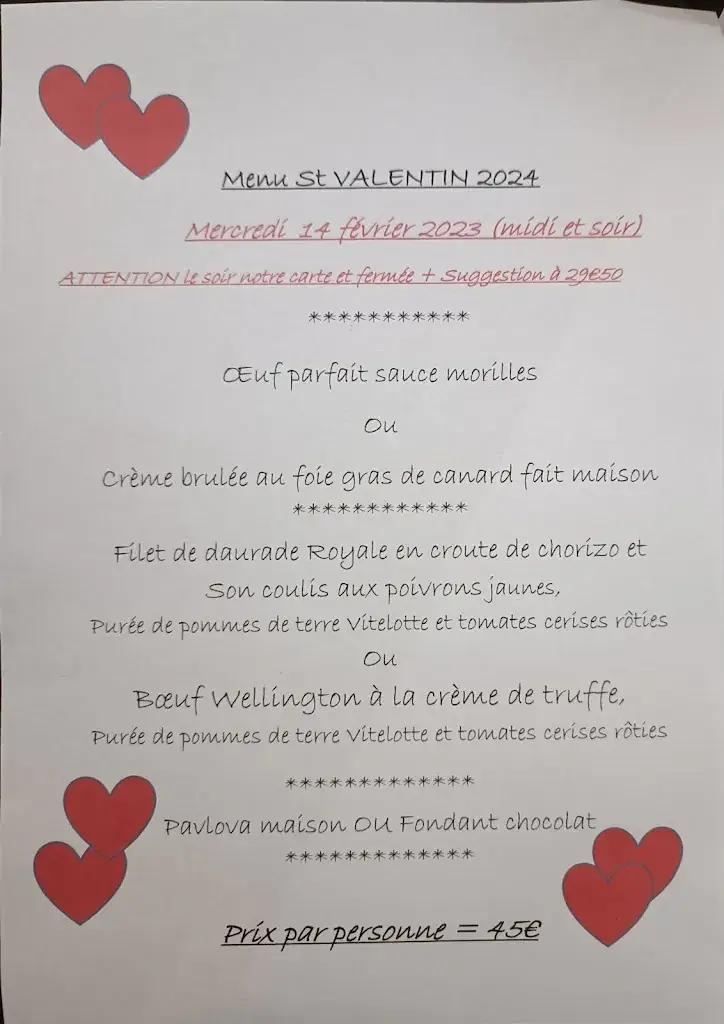 Menu St VALENTIN 2024
Mercredi 14 février 2023 (midi et soir)
ATTENTION le soir notre carte et fermée + Suggestion à 29€50
***********
Œuf parfait sauce morilles
Ou
Crème brulée au foie gras de canard fait maison
************
Filet de daurade Royale en croute de chorizo et
Son coulis aux poivrons jaunes,
Purée de pommes de terre Vitelotte et tomates cerises rôties
Ou
Bœuf Wellington à la crème de truffe,
Purée de pommes de terre Vitelotte et tomates cerises rôties
*************
Pavlova maison OU Fondant chocolat
*************
Prix par personne = 45€